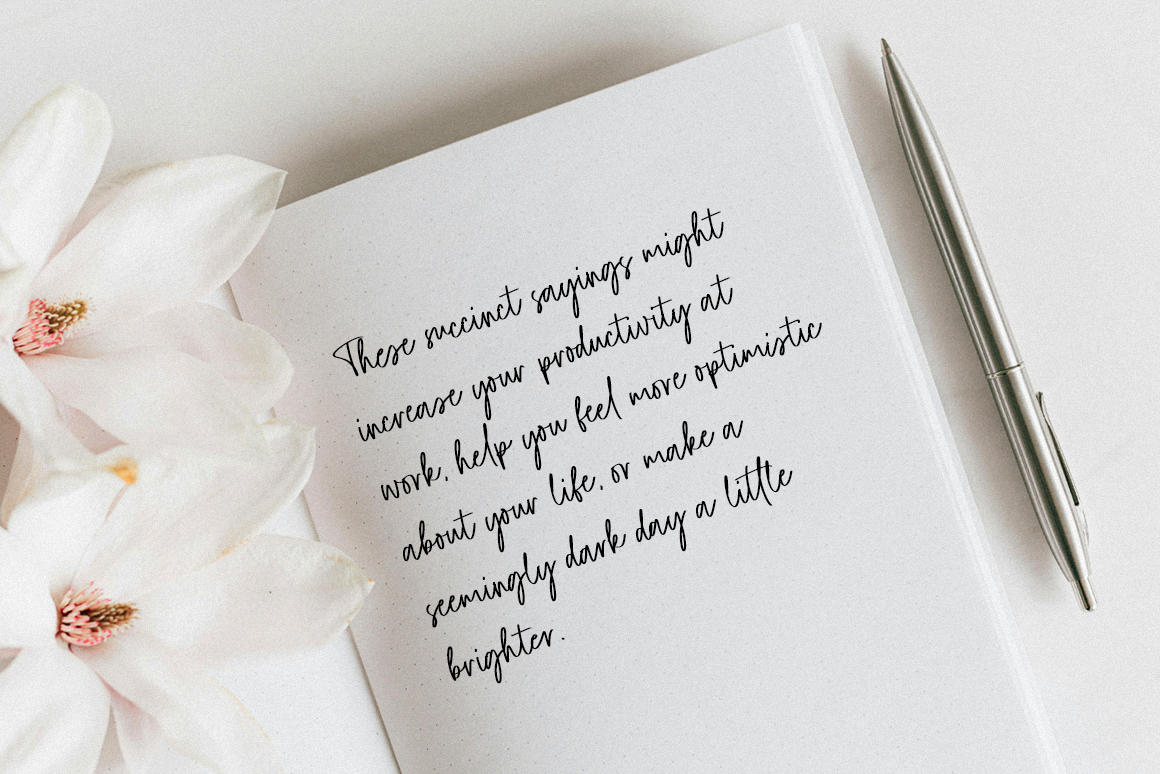 These succinct sayings might
increase your productivity at
work, help you feel more optimistic
about your life, or make a
seemingly dark day a little
brighter.